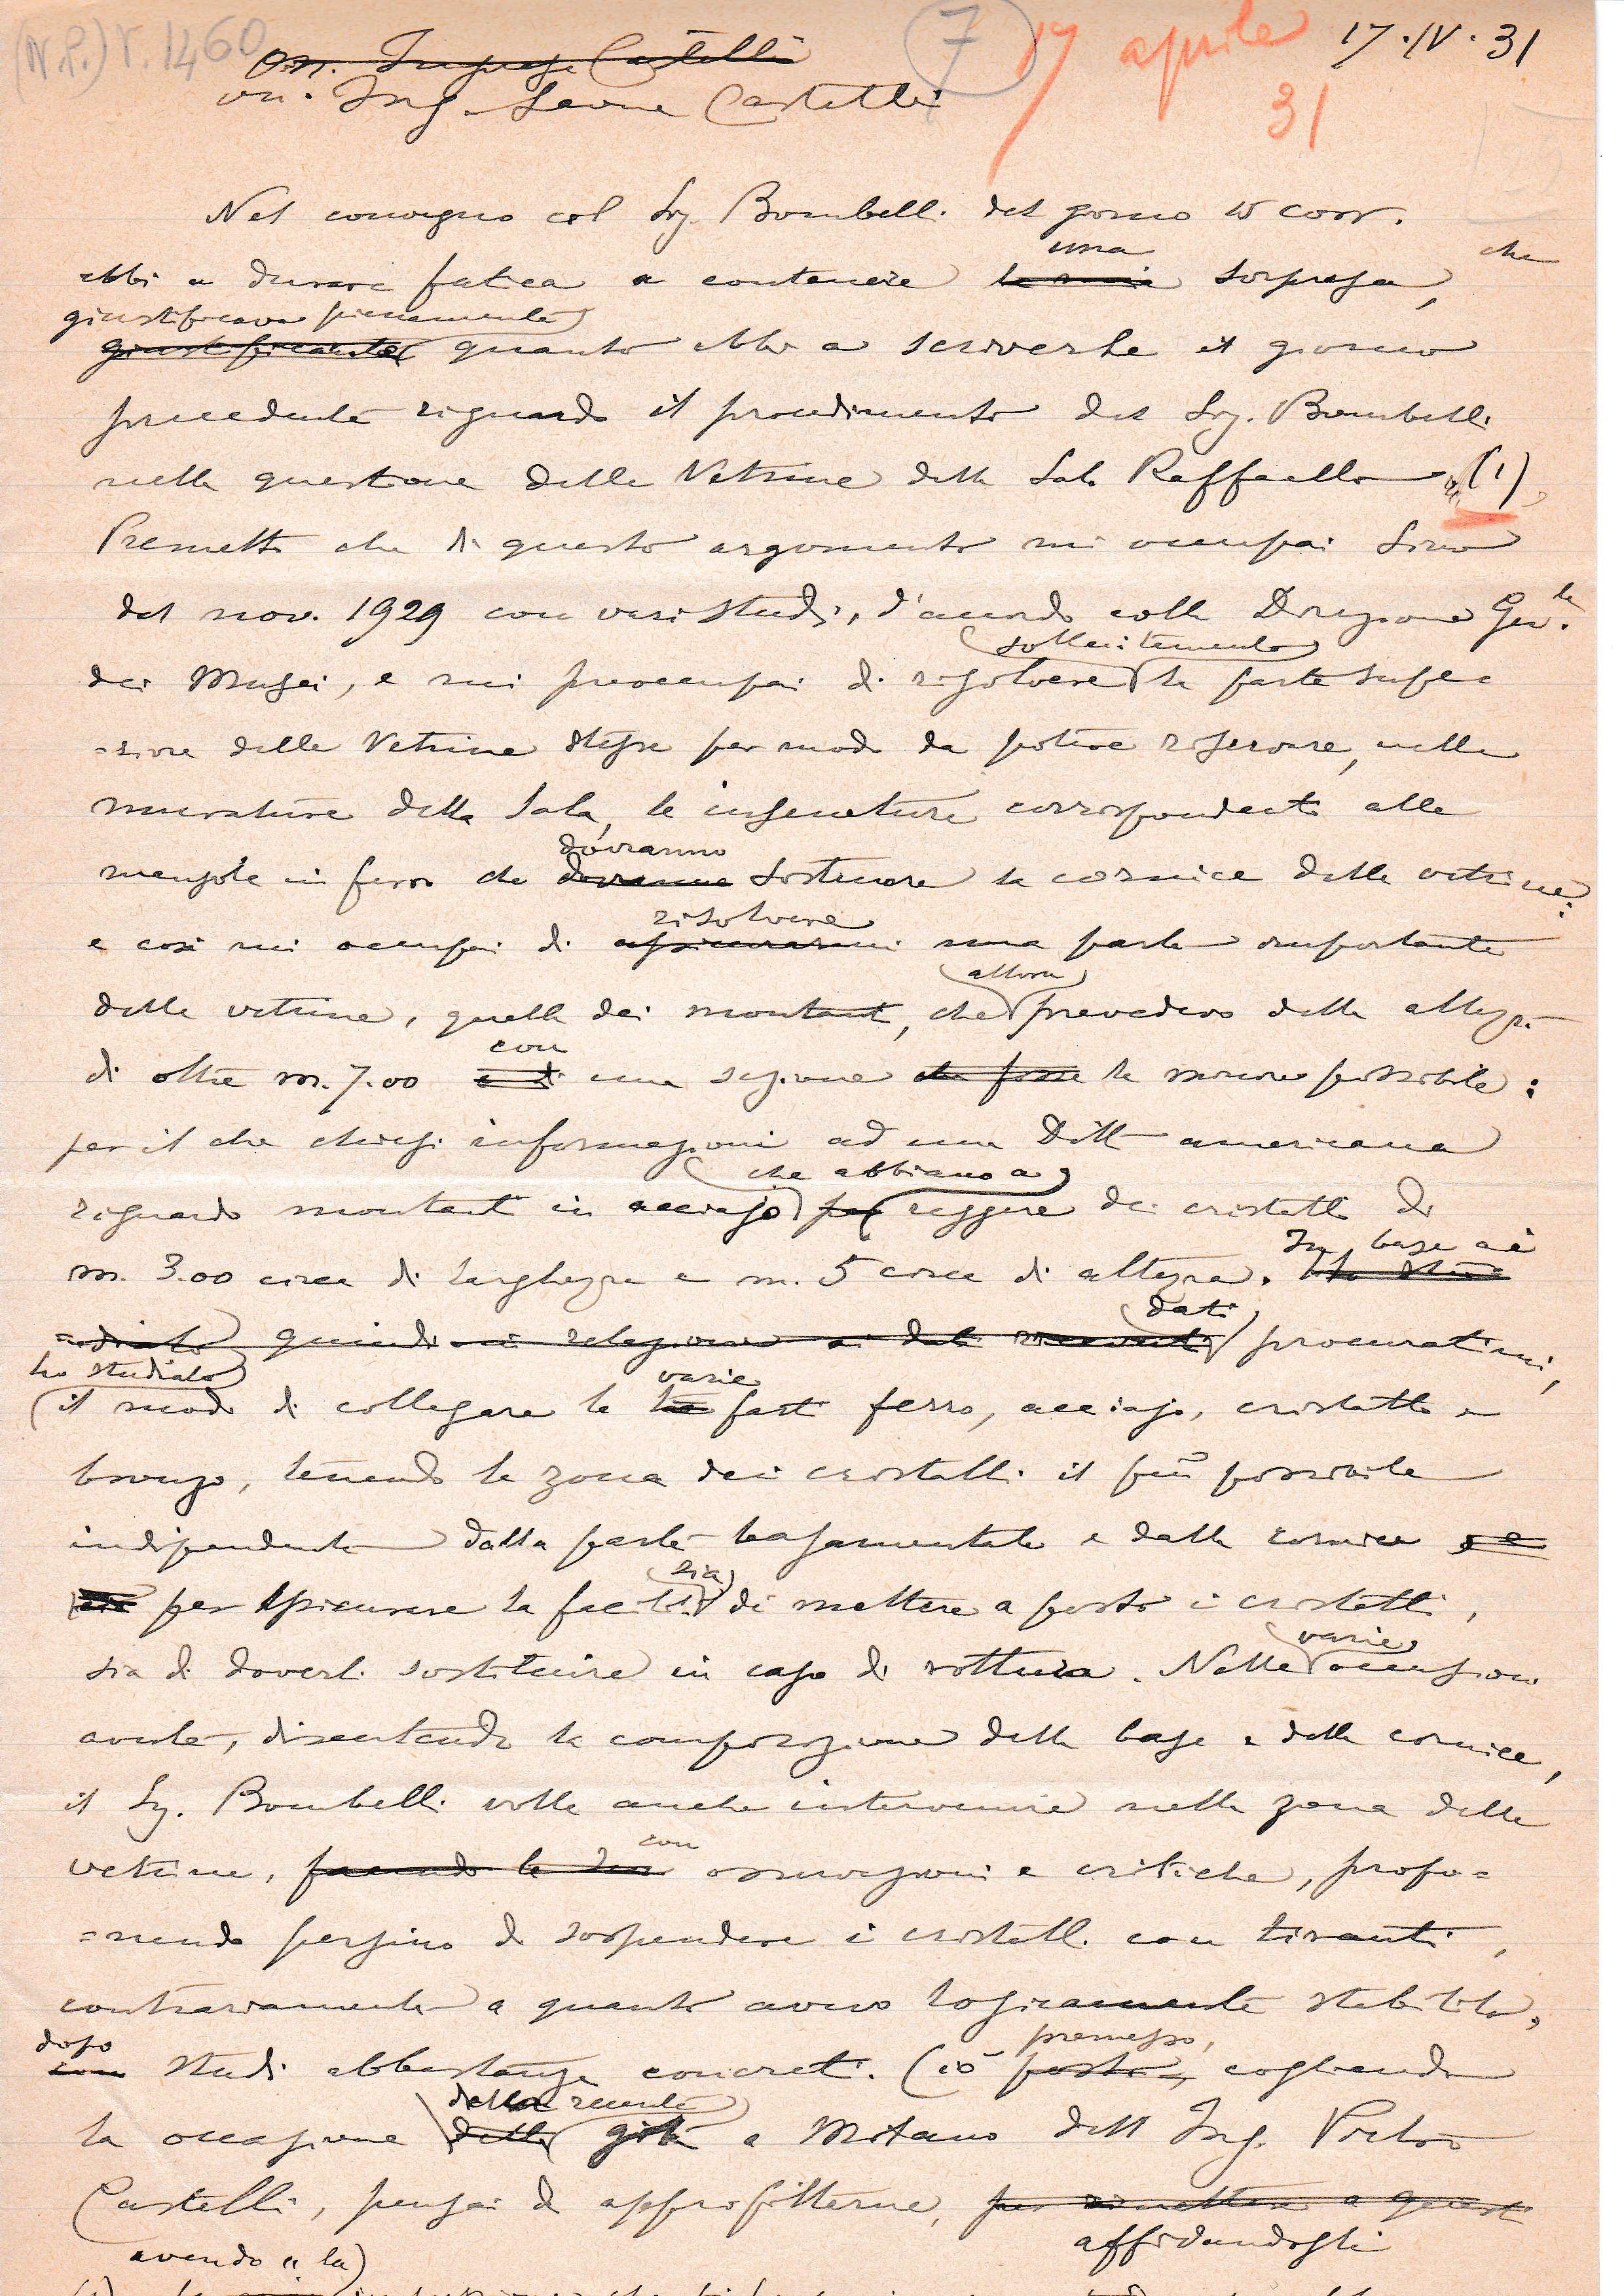 (N.P.) V. 1460
7
17 aprile 31
17.IV.31
On. Impresa Castelli
On. Ing. Leone Castelli
Nel convegno col Sig. Bombelli del giorno 15 corr.
una che
ebbi a durare fatica a contenere la mia sorpresa,
giustificava pienamente
giustificante quanto ebbi a scriverLe il giorno
precedente riguardo il procedimento del Sig. Bombelli
nella questione delle Vetrine della Sala Raffaello (1)
Premetto che di questo argomento mi occupai sino
dal nov. 1929 con vari studi, d'accordo colla Direzione Gen.le
sollecitamente
dei Musei, e mi preoccupai di risolvere la parte supe=
=riore delle Vetrine stesse per modo da potere riservare, nelle
murature della Sala, le insenature corrispondenti alle
dovranno
mensole in ferro che dovranno sostenere la cornice delle vetrine:
risolvere
e così mi occupai di assicurarmi una parte importante
allora
delle vetrine, quella dei montanti, che prevedevo della altezza
con
di oltre m. 7.00 e di una sezione che fosse la minore possibile:
per il che chiesi informazioni ad una Ditta americana
che abbiano a
riguardo montanti in acciajo per reggere dei cristalli di
In base ai
m. 3.00 circa di larghezza e m. 5 circa di altezza. Ho stu=
dati
=diato quindi in relazione ai dati ricevuti procuratimi,
ho studiato varie
il modo di collegare le tre parti ferro, acciajo, cristallo e
bronzo, tenendo la zona dei cristalli il più possibile
indipendente dalla parte basamentale e dalla cornice
sia
per assicurare la facilità di mettere a posto i cristalli,
varie
sia di doverli sostituire in caso di rottura. Nelle occasioni
avute, discutendo la composizione della base e della cornice,
il Sig. Bombelli volle anche intervenire nella zona delle
con
vetrine, facendo le sue osservazioni e critiche, propo=
=nendo persino di sospendere i cristalli con tiranti,
contrariamente a quanto avevo logicamente stabilito,
dopo premesso,
con studi abbastanza concreti. Ciò posto, cogliendo
della recente
la occasione della gita a Milano dell'Ing. Pietro
Castelli, pensai di approfittarne, per rimettere a questi
affidandogli
avendo "la